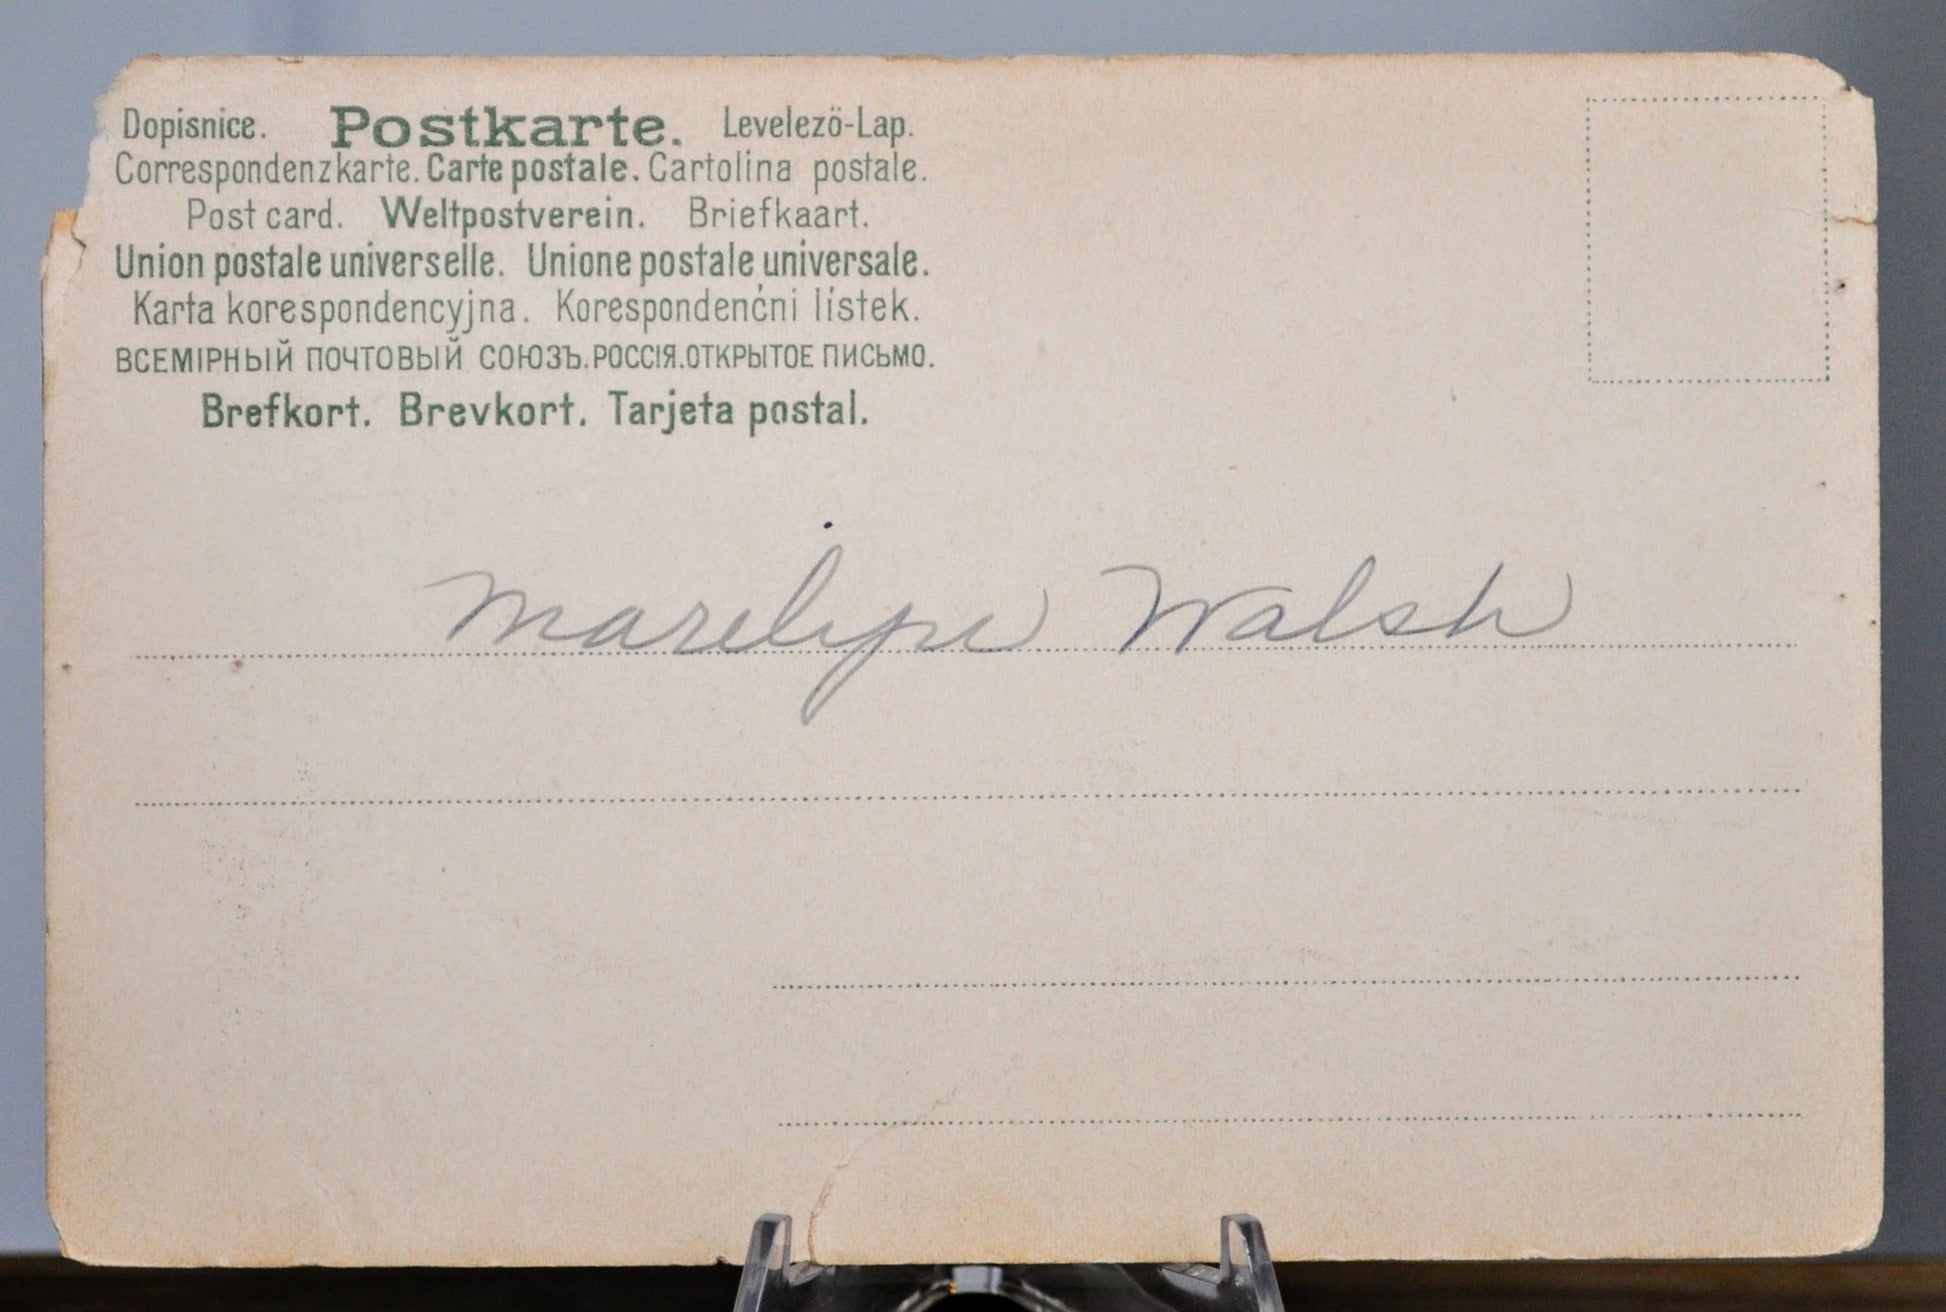 Dopisnice. Postkarte. Levelező-Lap.
Correspondenzkarte. Carte postale. Cartolina postale.
Post card. Weltpostverein. Briefkaart.
Union postale universelle. Unione postale universale.
Karta korespondencyjna. Korespondenćni lístek.
ВСЕМІРНЫЙ ПОЧТОВЫЙ СОЮЗЪ. РОССІЯ. ОТКРЫТОЕ ПИСЬМО.
Brefkort. Brevkort. Tarjeta postal.
Walsh